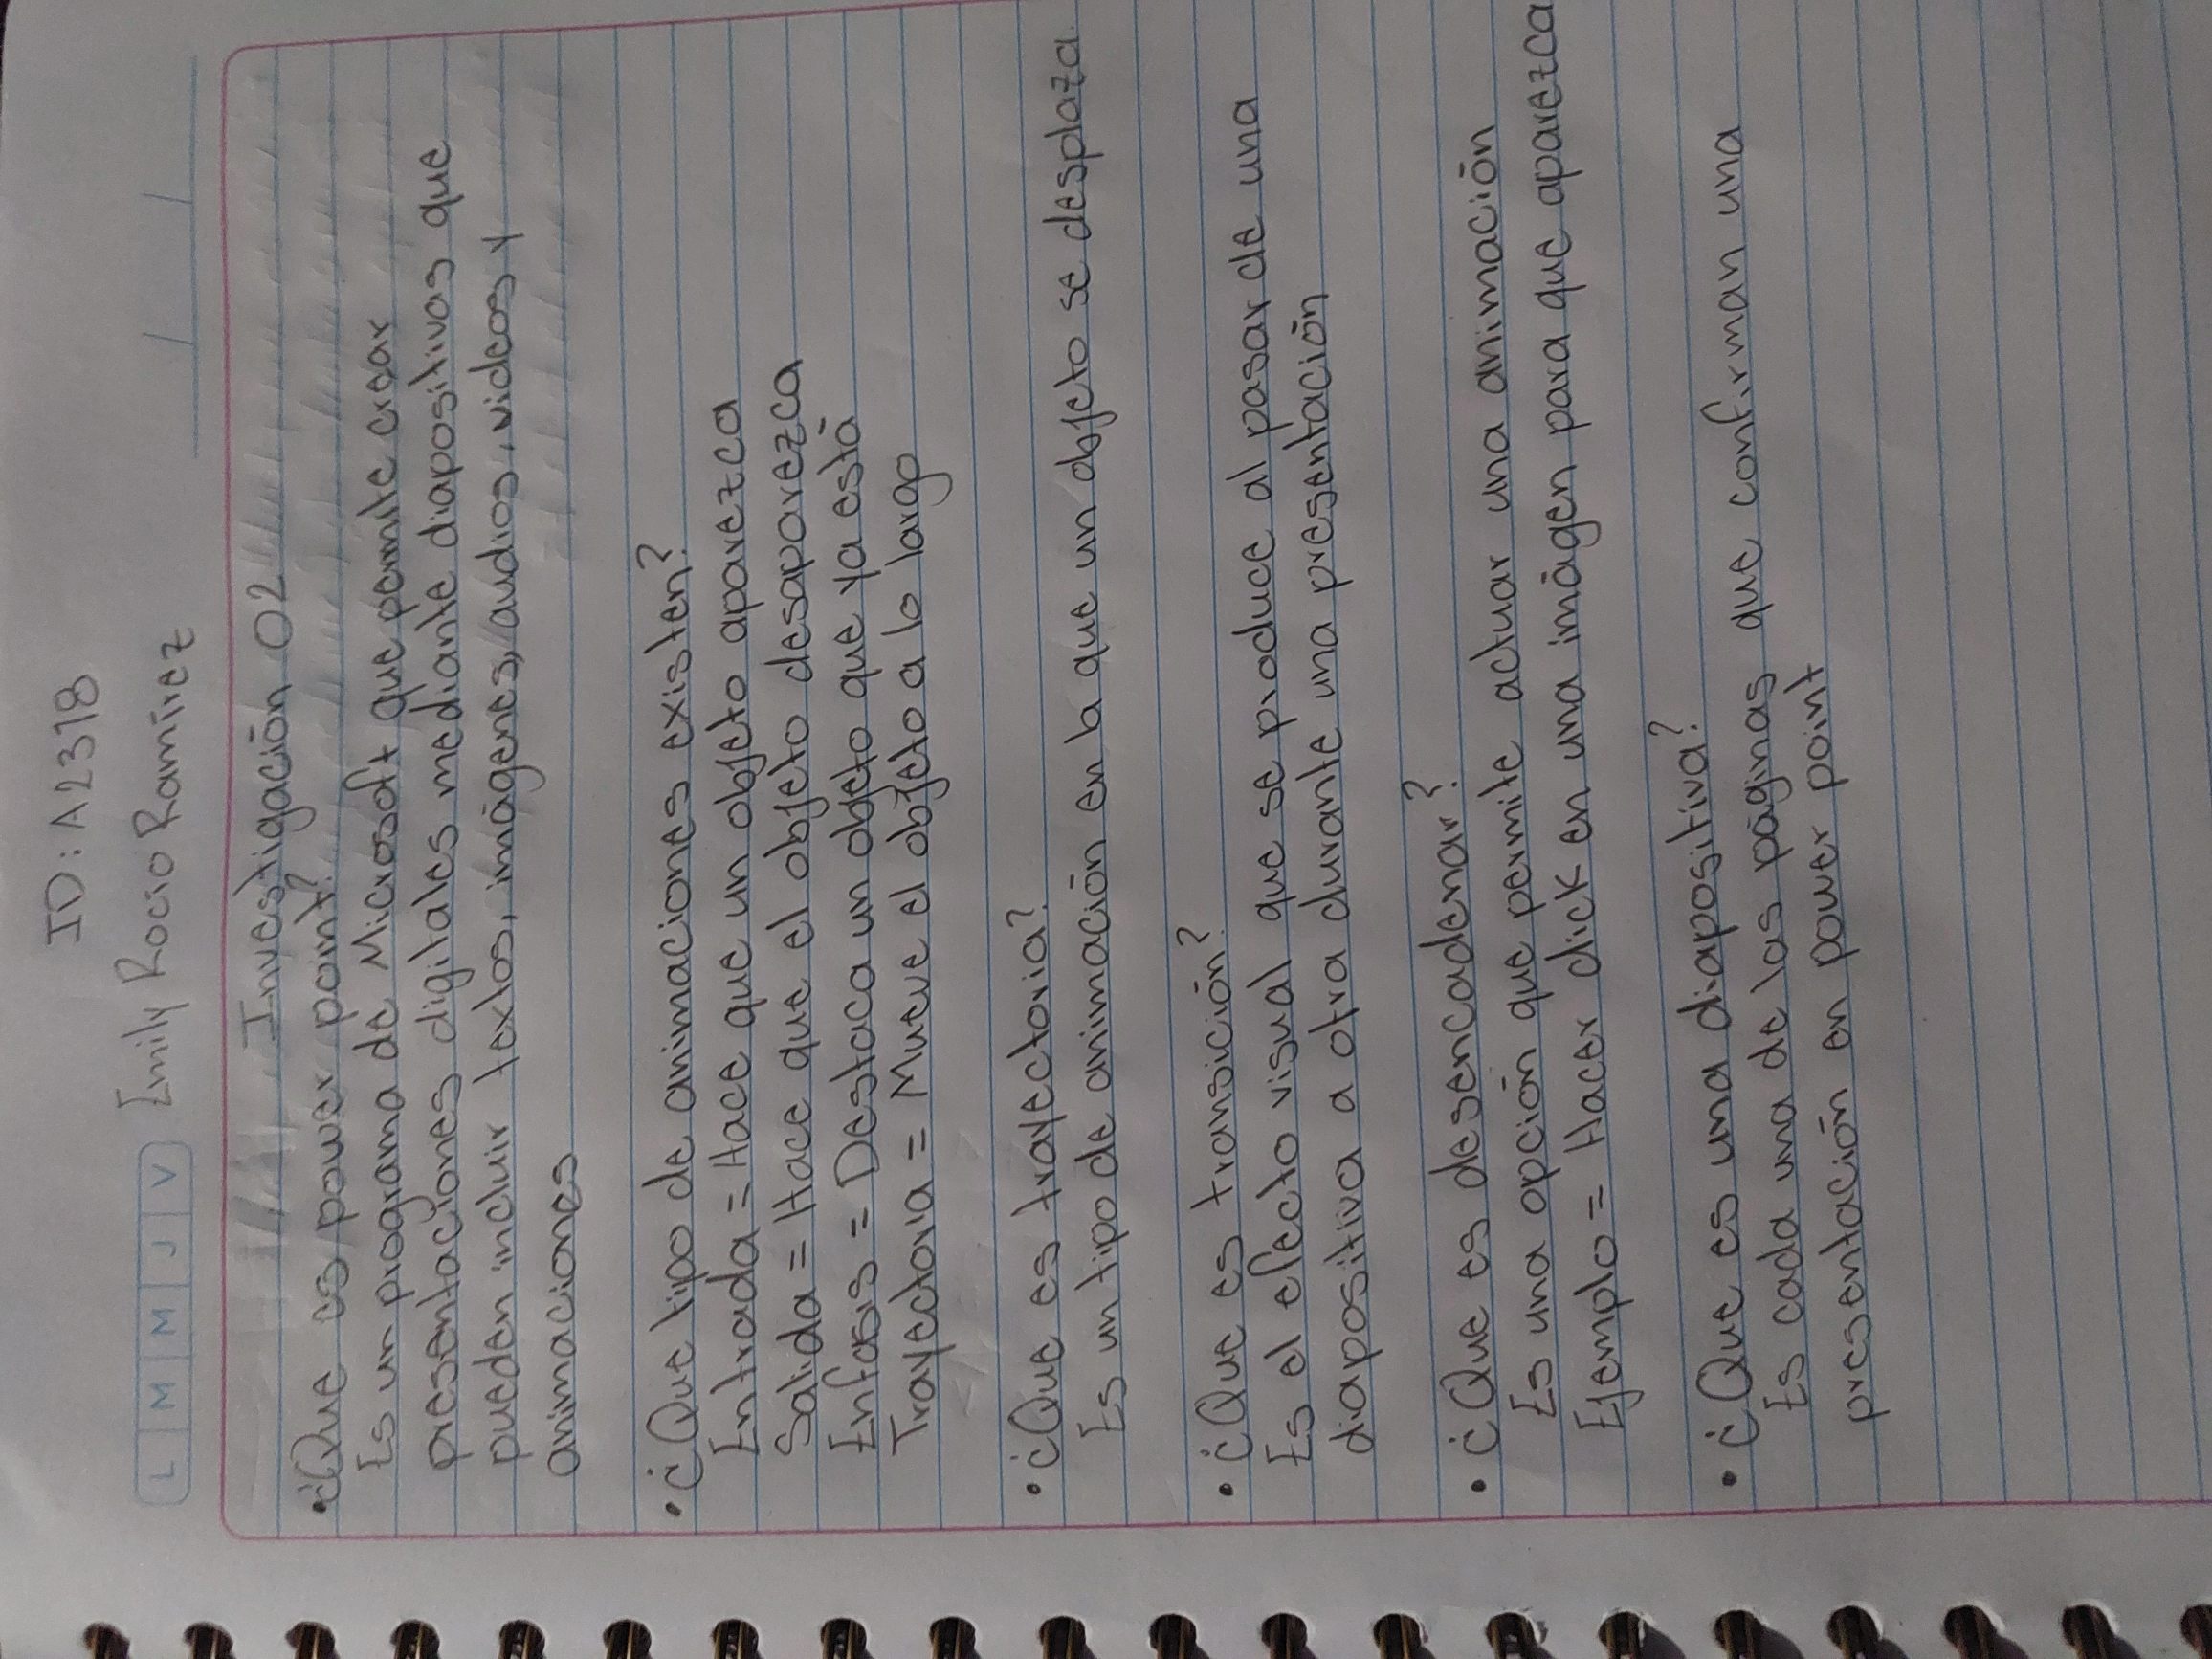 ID: A2318
L M M J V Emily Rocio Ramírez
Investigación 02
• ¿Que es power point?
Es un programa de Microsoft que permite crear
presentaciones digitales mediante diapositivas que
pueden incluir textos, imágenes, audios, videos y
animaciones
• ¿Que tipo de animaciones existen?
Entrada = Hace que un objeto aparezca
Salida = Hace que el objeto desaparezca
Enfasis = Destaca un objeto que ya está
Trayectoria = Mueve el objeto a lo largo
• ¿Que es trayectoria?
Es un tipo de animación en la que un objeto se desplaza
• ¿Que es transición?
Es el efecto visual que se produce al pasar de una
diapositiva a otra durante una presentación
• ¿Que es desencadenar?
Es una opción que permite actuar una animación
Ejemplo = Hacer click en una imágen para que aparezca
• ¿Que es una diapositiva?
Es cada una de las páginas que confirman una
presentación en power point